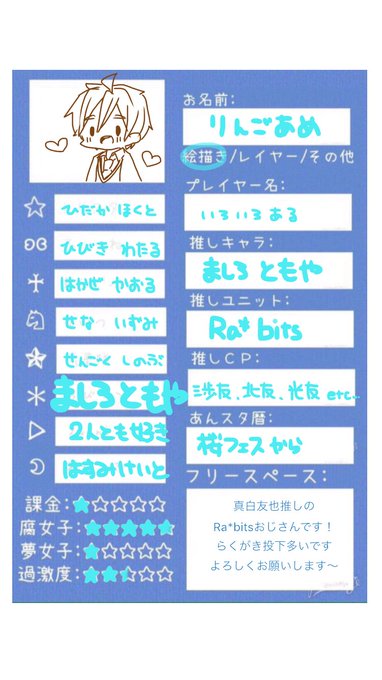 お名前:
りんごあめ
絵描き/レイヤー/その他
プレイヤー名:
いろいろある
推しキャラ:
ましろ ともや
推しユニット:
Ra* bits
推しCP:
渉友、北友、光友 etc...
あんスタ暦:
桜フェスから
フリースペース:
真白友也推しの
Ra*bitsおじさんです!
らくがき投下多いです
よろしくお願いします〜
ひだか ほくと
ひびき わたる
はかぜ かおる
せな いずみ
せんごく しのぶ
ましろともや
2人とも好き
はすみけいと
課金:
腐女子:
夢女子:
過激度: